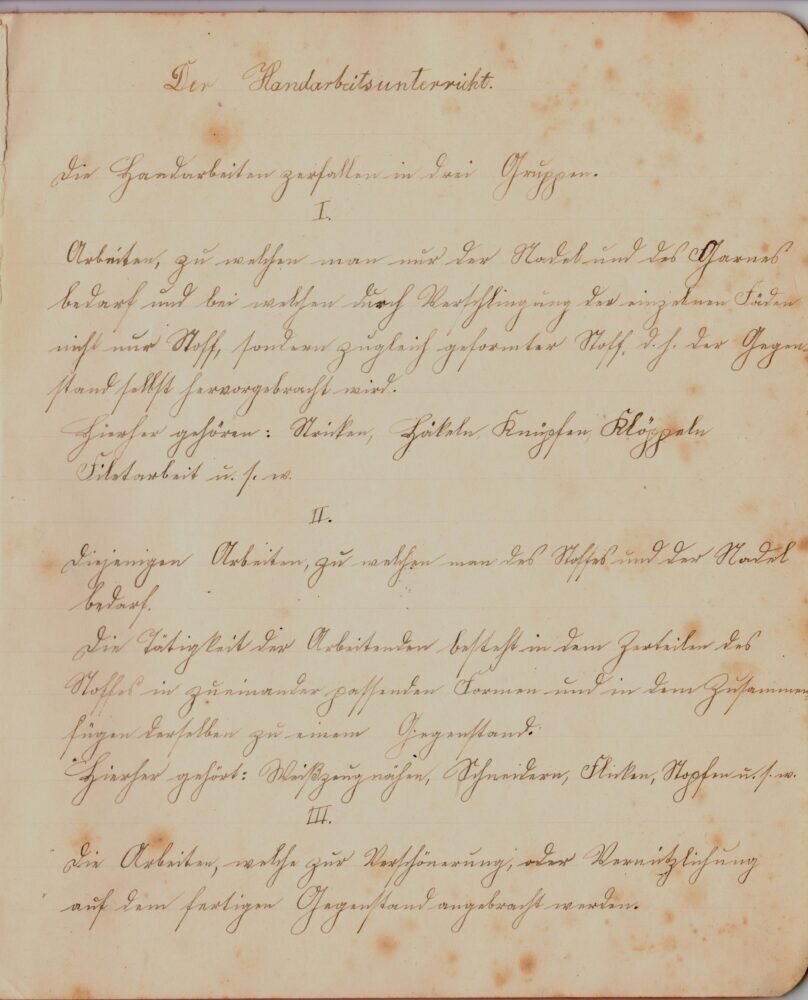 Der Handarbeitsunterricht.
Die Handarbeiten zerfallen in drei Gruppen.
I.
Arbeiten, zu welchen man nur der Nadel und des Garnes
bedarf und bei welchen durch Verschlingung der einzelnen Fäden
nicht nur Stoff, sondern zugleich geformter Stoff, d. h. der Gegen-
stand selbst hervorgebracht wird.
Hierher gehören: Stricken, Häkeln, Knüpfen, Klöppeln
Filetarbeit u. s. w.
II.
Diejenigen Arbeiten, zu welchen man des Stoffes und der Nadel
bedarf.
Die Tätigkeit der Arbeitenden besteht in dem Zerteilen des
Stoffes in zueinander passenden Formen und in dem Zusammen
fügen derselben zu einem Gegenstand.
Hierher gehört: Weißzeugnähen, Schneidern, Flicken, Stopfen u. s. w.
III.
Die Arbeiten, welche zur Verschönerung, oder Vernützlichung
auf dem fertigen Gegenstand angebracht werden.